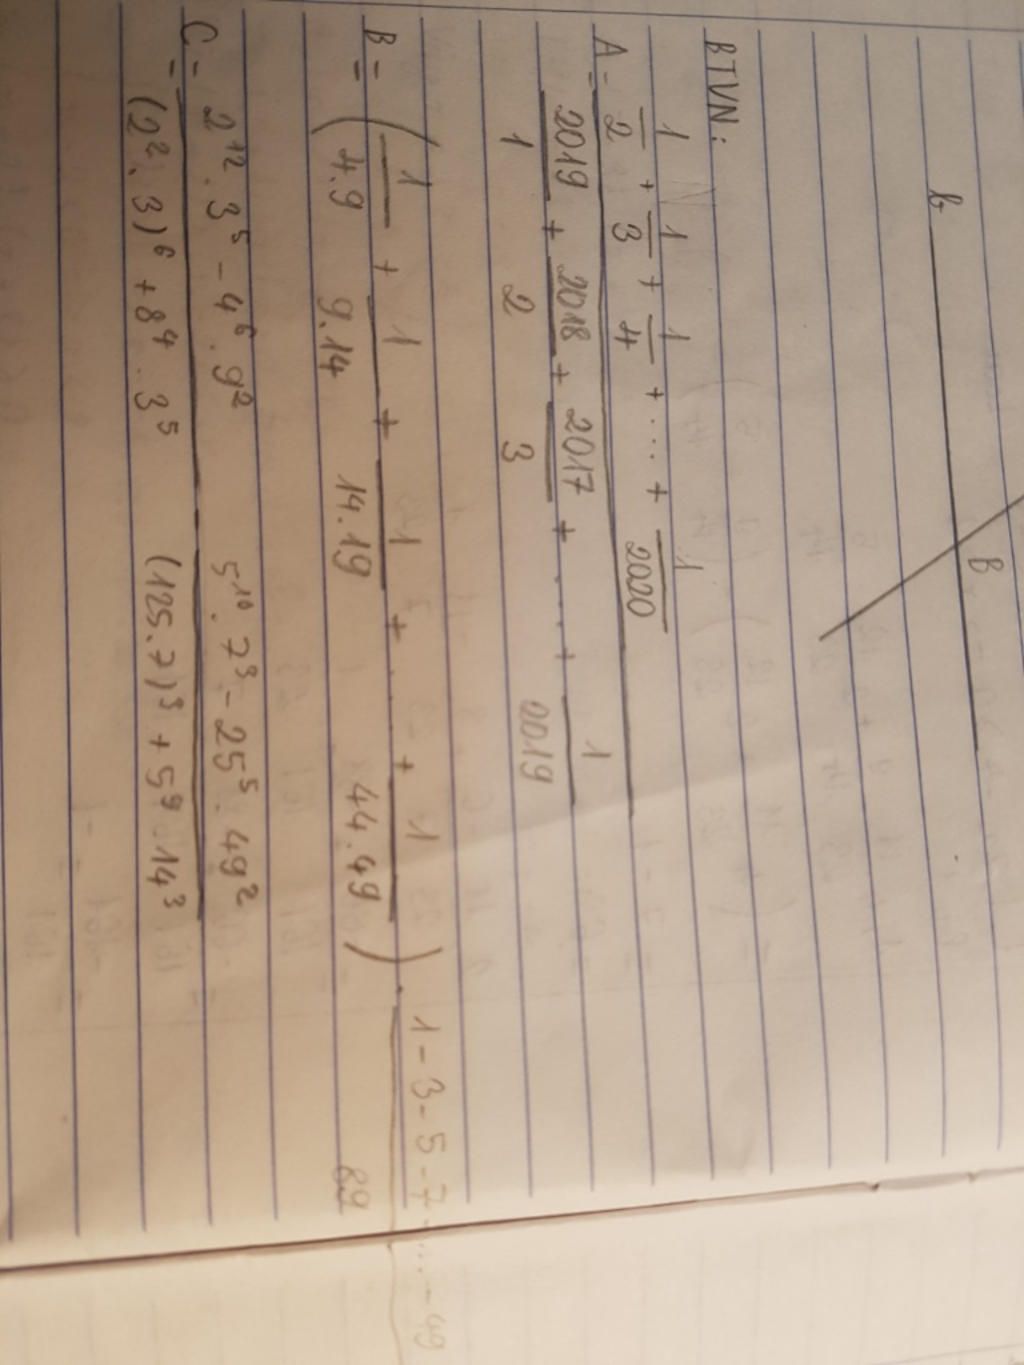 b
B
BTVN:
A = \frac{\frac{1}{2} + \frac{1}{3} + \frac{1}{4} + ... + \frac{1}{2020}}{\frac{2019}{1} + \frac{2018}{2} + \frac{2017}{3} + .... + \frac{1}{2019}}
B = (\frac{1}{4.9} + \frac{1}{9.14} + \frac{1}{14.19} + ... + \frac{1}{44.49}) . \frac{1-3-5-7-...-49}{89}
C = \frac{2^{12}.3^5 - 4^6.9^2}{(2^2.3)^6 + 8^4.3^5} - \frac{5^{10}.7^3 - 25^5.49^2}{(125.7)^3 + 5^9.14^3}